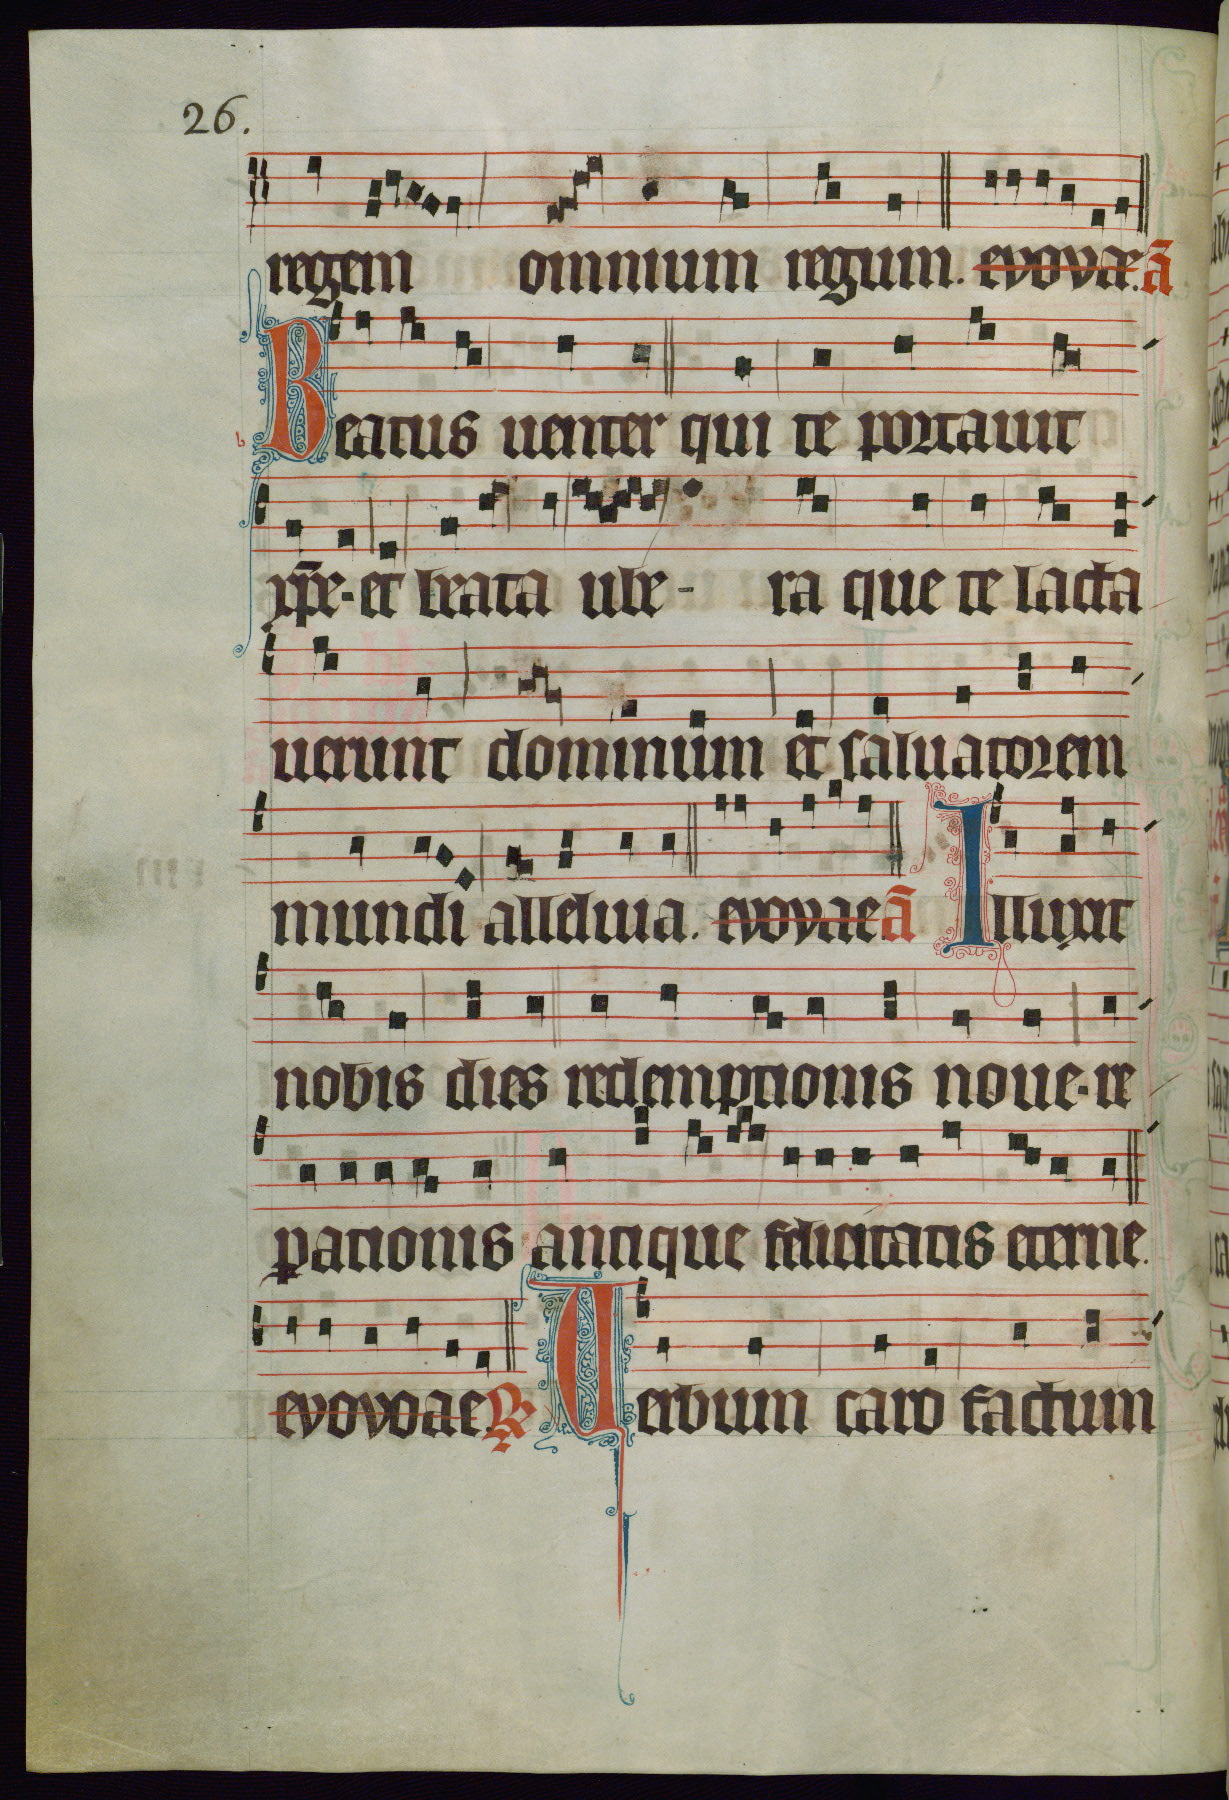 26.
regem omnium regum. evovae. ā
Beatus uenter qui te portauit
xp̄e. et beata ube - ra que te lacta
uerunt dominum et saluatorem
mundi alleluia. evovae. ā Illuxit
nobis dies redemptionis noue. re
pationis antique felicitatis eterne.
evovoae. ℟ Uerbum caro factum